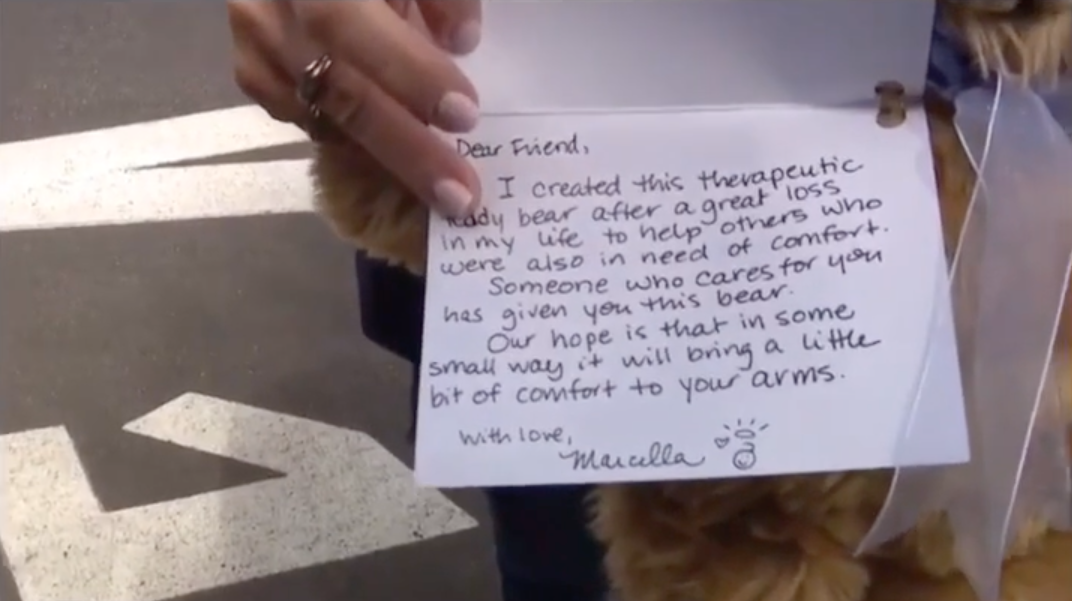 Dear Friend,
I created this therapeutic
teddy bear after a great loss
in my life to help others who
were also in need of comfort.
Someone who cares for you
has given you this bear.
Our hope is that in some
small way it will bring a little
bit of comfort to your arms.
With love,
Marcella